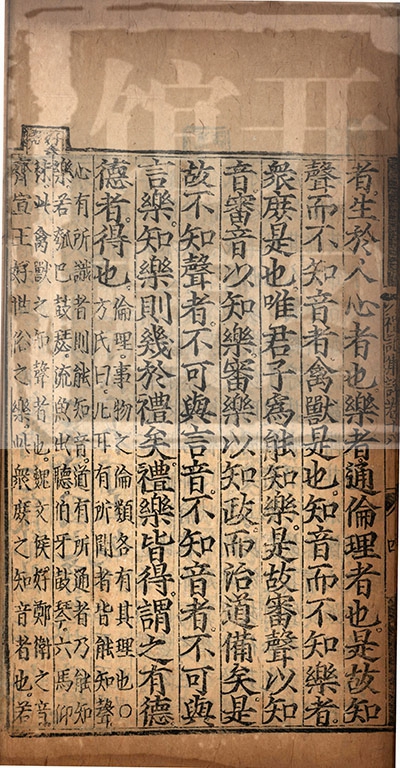 者生於人心者也。樂者通倫理者也。是故知
聲而不知音者。禽獸是也。知音而不知樂者。
衆庶是也。唯君子爲能知樂。是故審聲以知
音。審音以知樂。審樂以知政。而治道備矣。是
故不知聲者。不可與言音。不知音者。不可與
言樂。知樂則幾於禮矣。禮樂皆得。謂之有德。
德者。得也。
倫理。事物之倫類各有其理也。○
方氏曰。凡耳有所聞者皆能知聲
心有所識者則能知音。道有所通者乃能知
樂。若瓠巴鼓瑟。流魚出聽。伯牙鼓琴。六馬仰
秣。此禽獸之知聲者也。魏文侯好鄭衛之音。
齊宣王好世俗之樂。此衆庶之知音者也。若